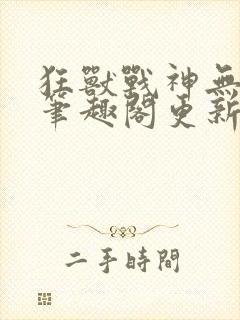 狂獸戰神無
筆趣閣更新
二手時間